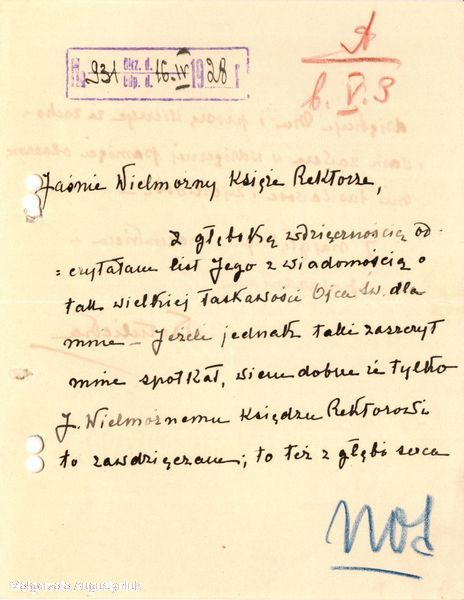 № 931 Otrz. d. Odp. d. 16.IV 1928 r
A
b. V. 3
Jaśnie Wielmożny Księże Rektorze,
Z głęboką wdzięcznością od-
=czytałam list Jego z wiadomością o
tak wielkiej łaskawości Ojca Św. dla
mnie – Jeżeli jednak taki zaszczyt
mnie spotkał, wiem dobrze że tylko
J. Wielmożnemu Księdzu Rektorowi
to zawdzięczam; to też z głębi serca
Małgorzata